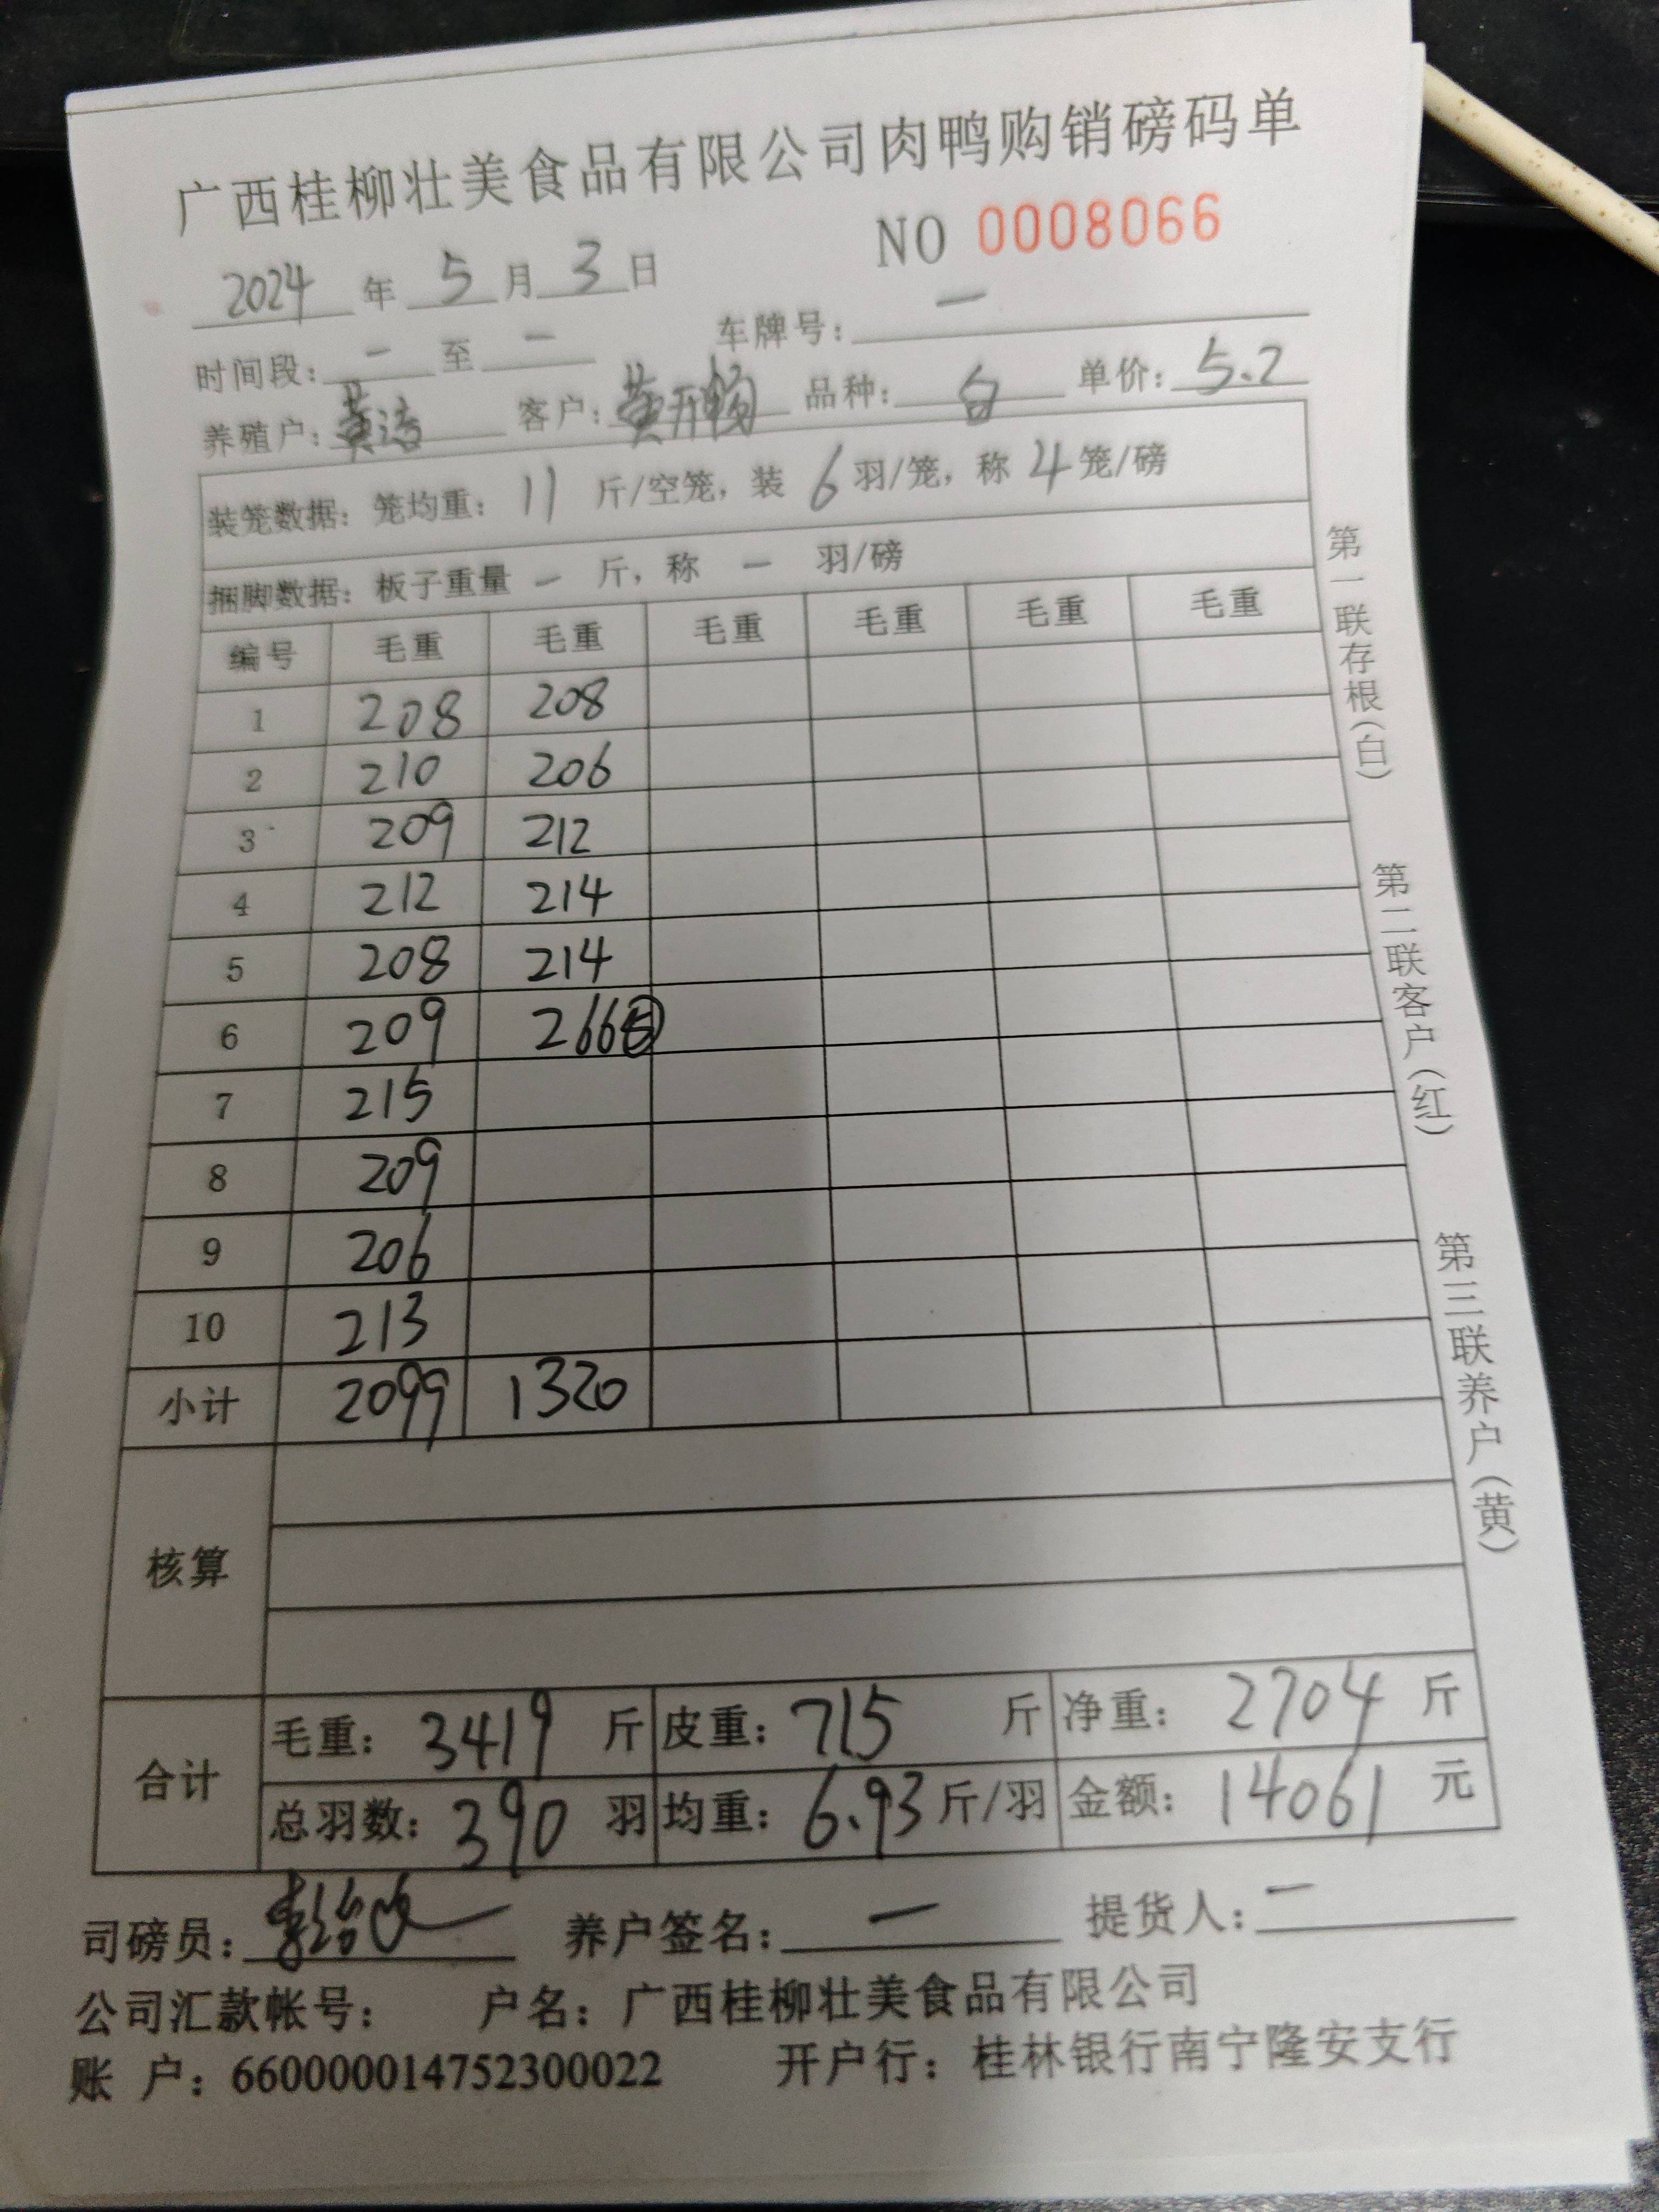 广西桂柳壮美食品有限公司肉鸭购销磅码单
NO 0008066
2024 年 5 月 3 日
时间段: 一 至 一 车牌号: 一
养殖户: 黄洁 客户: 黄开畅 品种: 白 单价: 5.2
装笼数据: 笼均重: 11 斤/空笼, 装 6 羽/笼, 称 4 笼/磅
捆脚数据: 板子重量 一 斤, 称 一 羽/磅
编号 毛重 毛重 毛重 毛重 毛重 毛重
1 208 208
2 210 206
3 209 212
4 212 214
5 208 214
6 209 266⑤
7 215
8 209
9 206
10 213
小计 2099 1320
核算
合计
毛重: 3419 斤 皮重: 715 斤 净重: 2704 斤
总羽数: 390 羽 均重: 6.93 斤/羽 金额: 14061 元
司磅员: 养户签名: 一 提货人: 一
公司汇款帐号: 户名: 广西桂柳壮美食品有限公司
账 户: 660000014752300022 开户行: 桂林银行南宁隆安支行
第一联存根(白)
第二联客户(红)
第三联养户(黄)